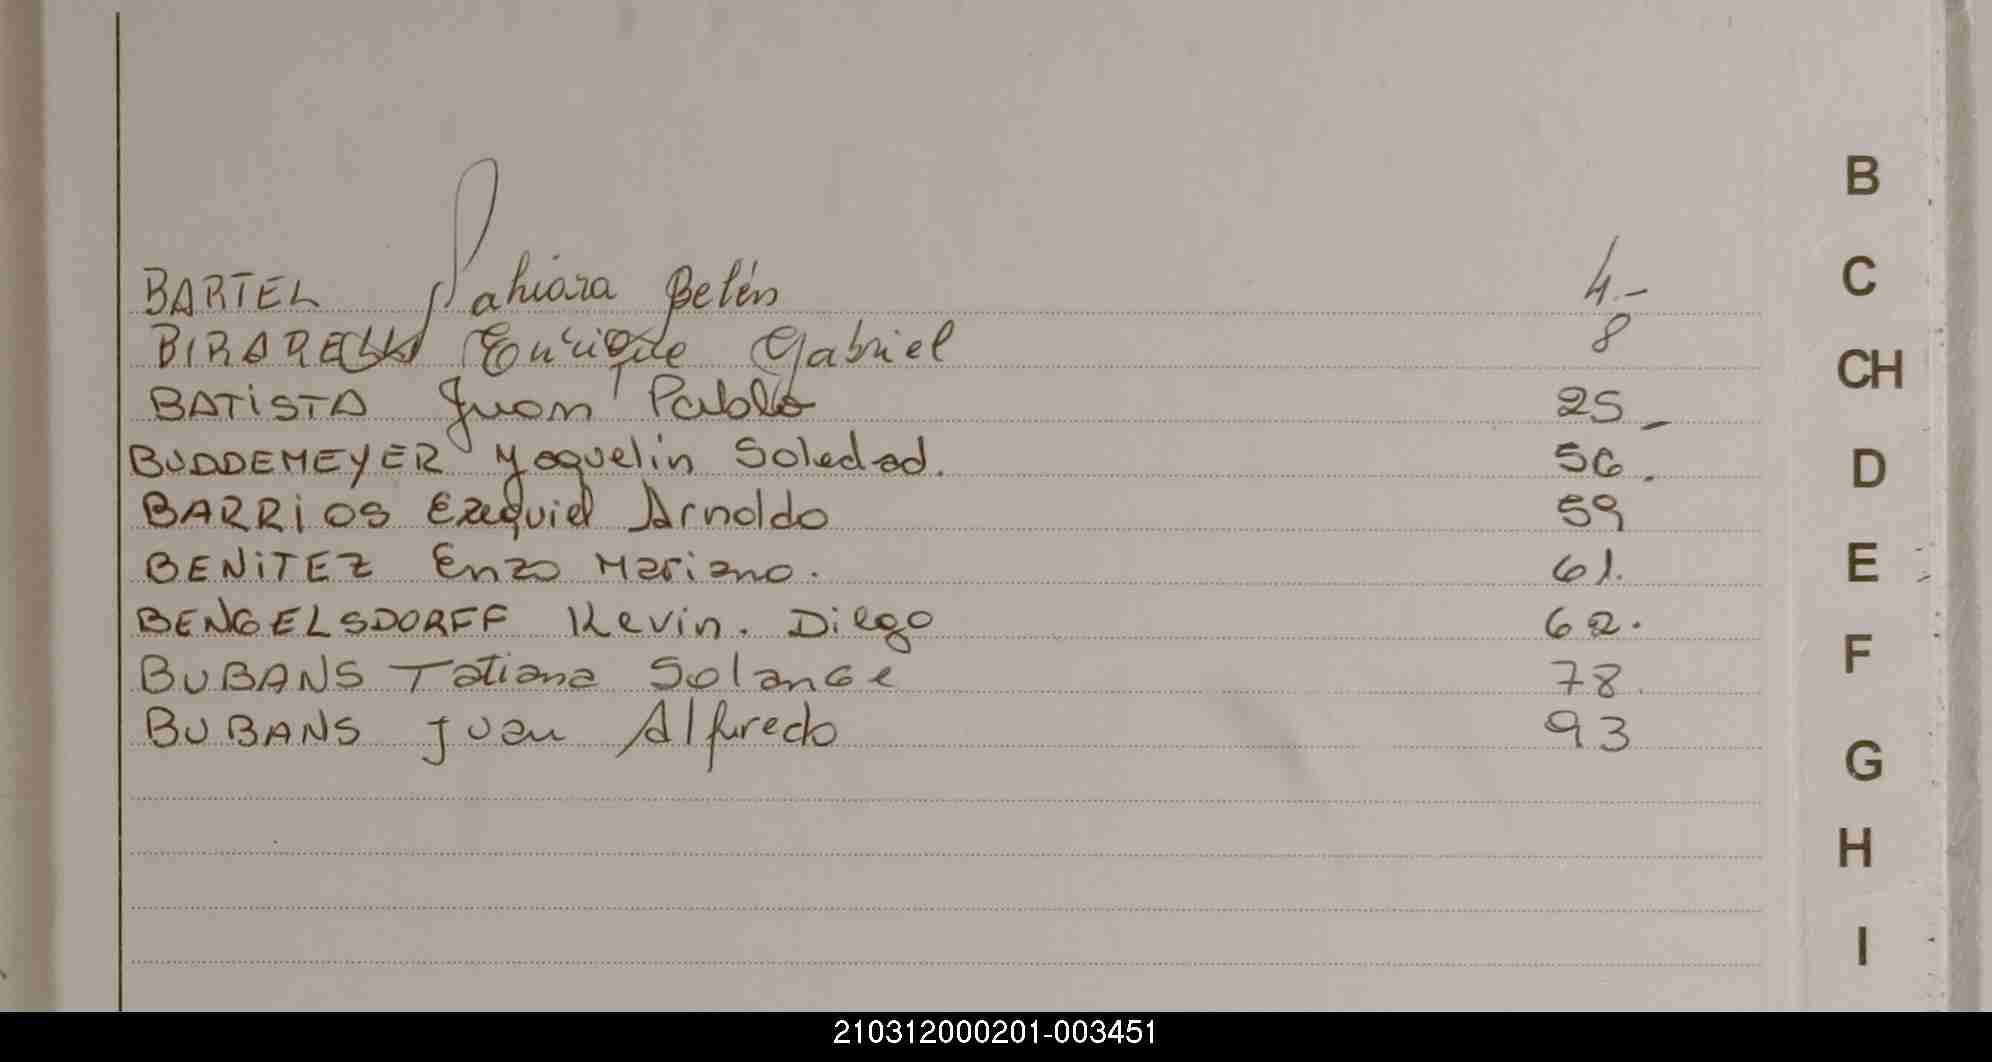 BARTEL Jahiara Belén 4.-
BIRARELLI Enrique Gabriel 8
BATiSTA Juan Pablo 25_
BUDDEMEYER Yaquelin Soledad. 56.
BARRiOS Ezequiel Arnoldo 59
BENiTEZ Enzo Mariano. 61.
BENGELSDORFF Kevin. Diego 62.
BUBANS Tatiana Solange 78.
BUBANS Juan Alfredo 93
B
C
CH
D
E
F
G
H
I
210312000201-003451